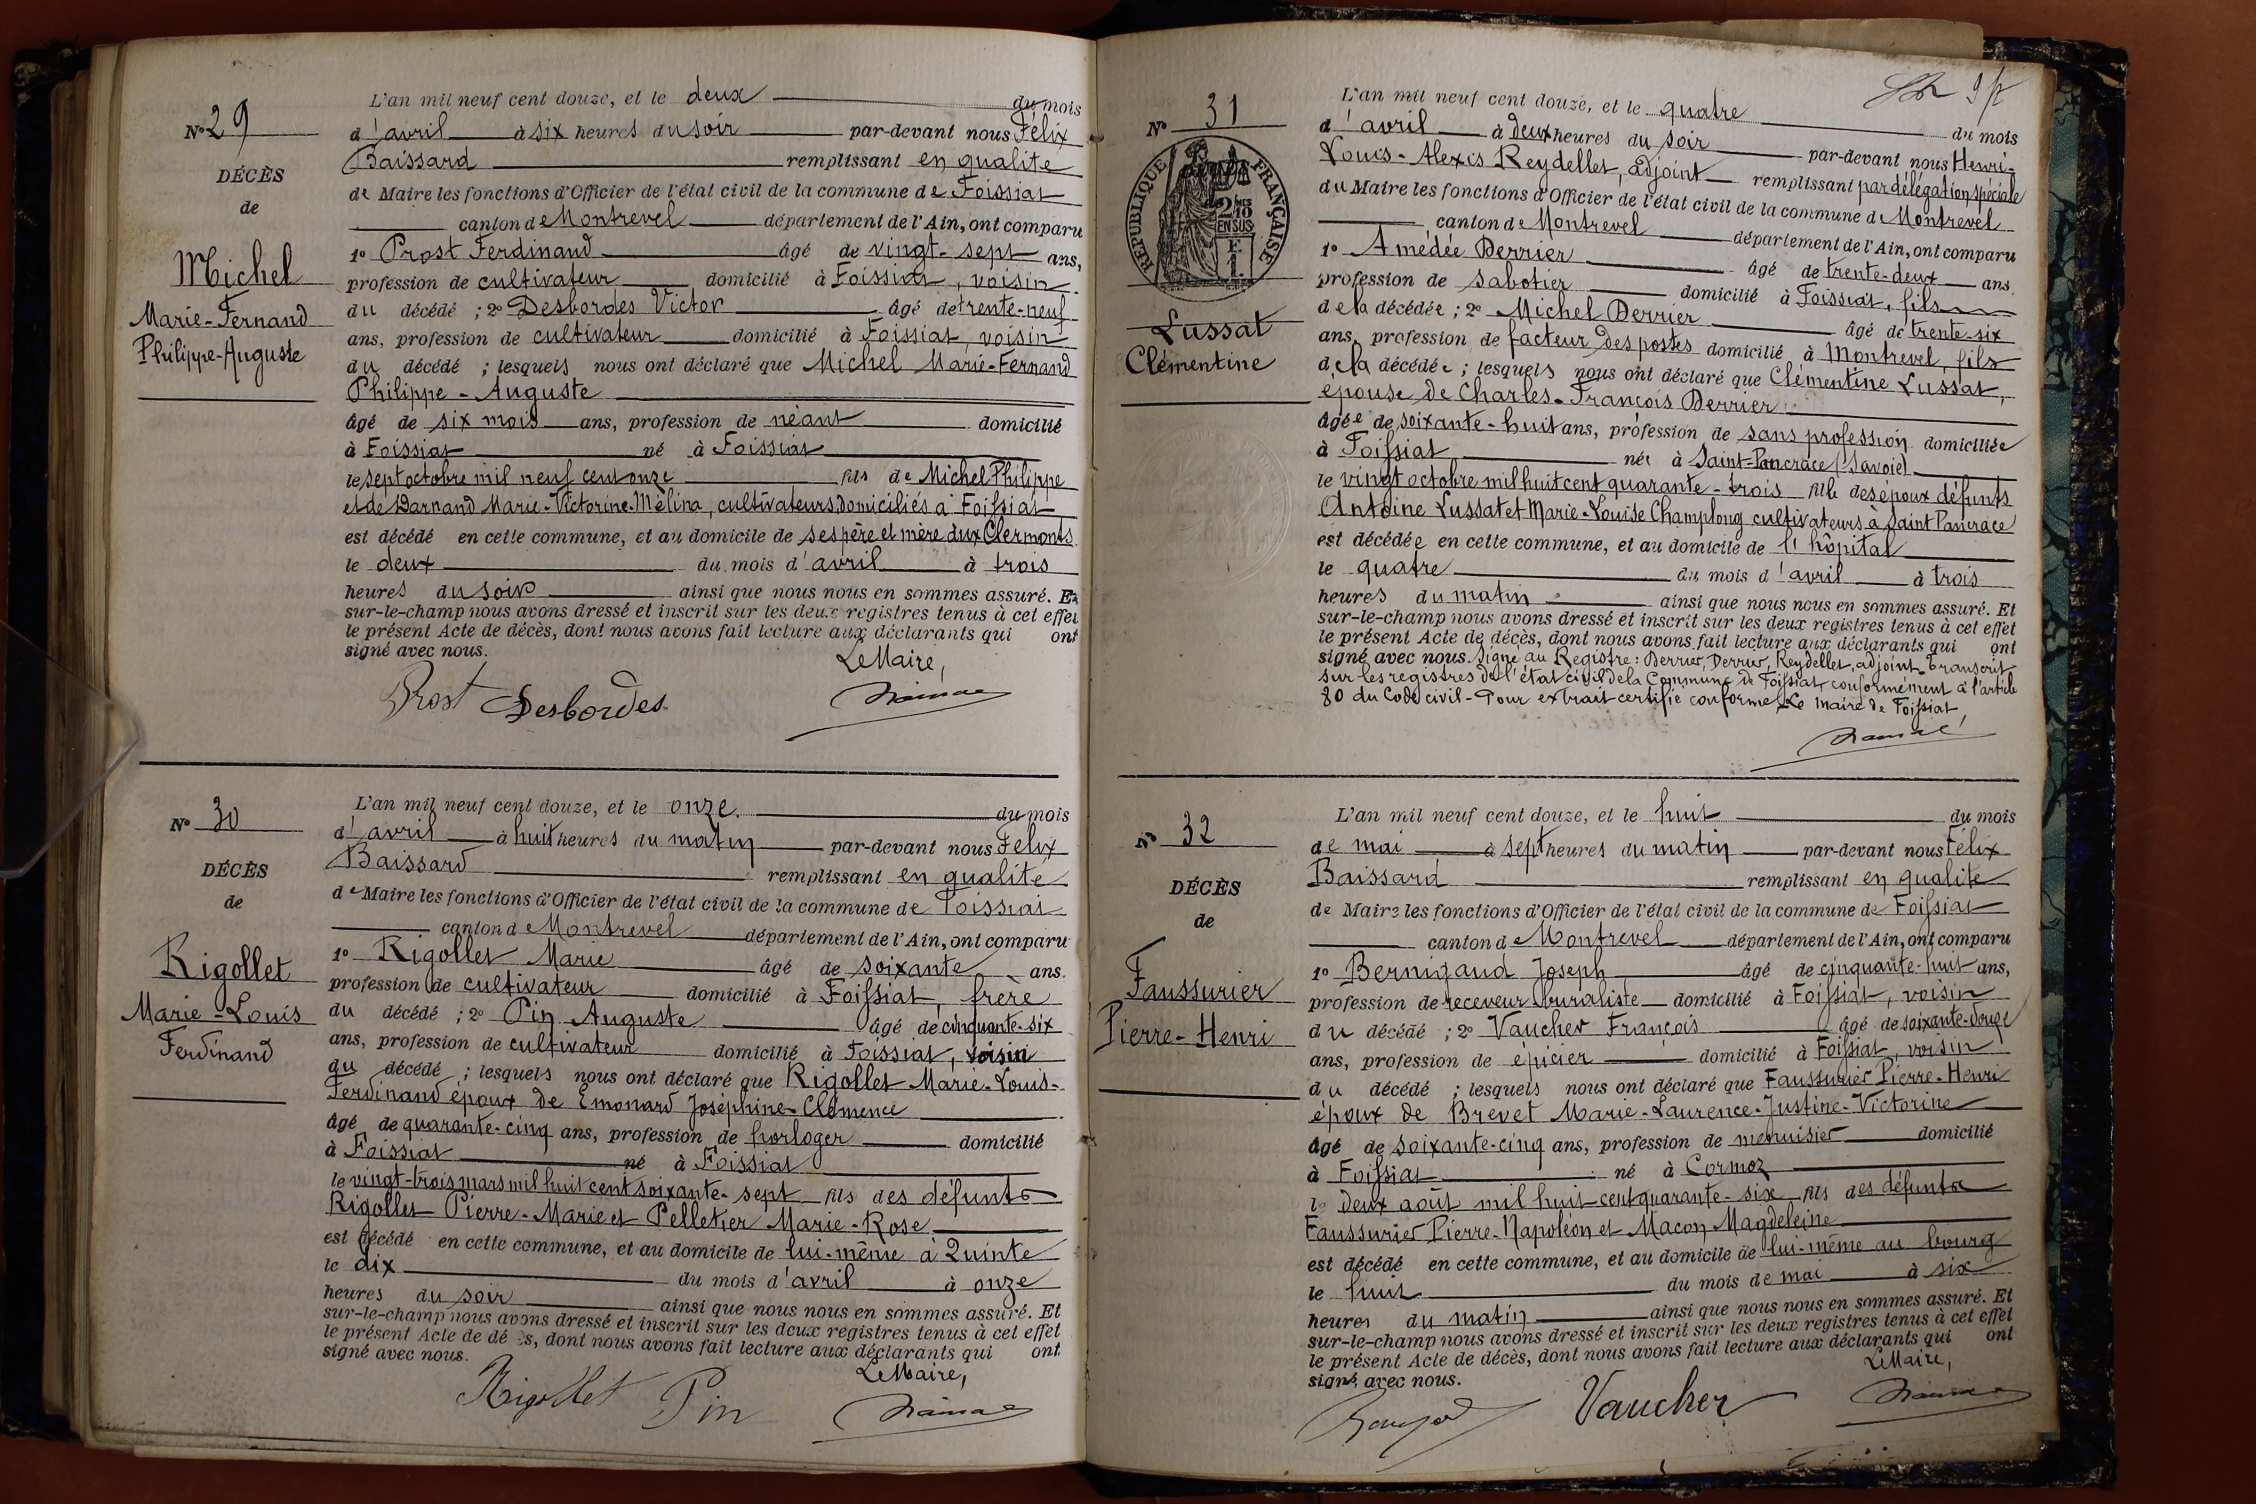 L'an mil neuf cent douze, et le deux du mois
N° 29
d'avril à six heures du soir par-devant nous Félix
Baissard remplissant en qualité
DÉCÈS
de Maire les fonctions d'Officier de l'état civil de la commune de Foissiat
de
canton de Montrevel département de l'Ain, ont comparu
1° Prost Ferdinand âgé de vingt-sept ans,
Michel
profession de cultivateur domicilié à Foissiat, voisin
Marie-Fernand
du décédé ; 2° Desbordes Victor âgé de trente-neuf
ans, profession de cultivateur domicilié à Foissiat, voisin
Philippe-Auguste
du décédé ; lesquels nous ont déclaré que Michel Marie-Fernand
Philippe-Auguste
âgé de six mois ans, profession de néant domicilié
à Foissiat né à Foissiat
le sept octobre mil neuf cent onze fils de Michel Philippe
et de Darnand Marie-Victorine-Mélina, cultivateurs domiciliés à Foissiat
est décédé en cette commune, et au domicile de ses père et mère aux Clermonts
le deux du mois d'avril à trois
heures du soir ainsi que nous nous en sommes assuré. Et
sur-le-champ nous avons dressé et inscrit sur les deux registres tenus à cet effet
le présent Acte de décès, dont nous avons fait lecture aux déclarants qui ont
signé avec nous.
Le Maire,
Prost Desbordes
L'an mil neuf cent douze, et le onze du mois
N° 30
d'avril à huit heures du matin par-devant nous Félix
Baissard remplissant en qualité
DÉCÈS
de Maire les fonctions d'Officier de l'état civil de la commune de Foissiat
de
canton de Montrevel département de l'Ain, ont comparu
1° Rigollet Marie âgé de soixante ans.
Rigollet
profession de cultivateur domicilié à Foissiat, frère
Marie-Louis
du décédé ; 2° Pin Auguste âgé de cinquante-six
Ferdinand
ans, profession de cultivateur domicilié à Foissiat, voisin
du décédé ; lesquels nous ont déclaré que Rigollet Marie-Louis-
Ferdinand époux de Emonard Joséphine-Clémence
âgé de quarante-cinq ans, profession de horloger domicilié
à Foissiat né à Foissiat
le vingt-trois mars mil huit cent soixante-sept fils des défunts
Rigollet Pierre-Marie et Pelletier Marie-Rose
est décédé en cette commune, et au domicile de lui-même à Quinte
le dix du mois d'avril à onze
heures du soir ainsi que nous nous en sommes assuré. Et
sur-le-champ nous avons dressé et inscrit sur les deux registres tenus à cet effet
le présent Acte de dé s, dont nous avons fait lecture aux déclarants qui ont
signé avec nous.
Le Maire,
Rigollet Pin
L'an mil neuf cent douze, et le quatre du mois
N° 31
d'avril à deux heures du soir par-devant nous Henri-
Louis-Alexis Reydellet, adjoint remplissant par délégation spéciale
RÉPUBLIQUE FRANÇAISE
2/10 EN SUS
du Maire les fonctions d'Officier de l'état civil de la commune de Montrevel
canton de Montrevel département de l'Ain, ont comparu
1° Amédée Derrier âgé de trente-deux ans
profession de sabotier domicilié à Foissiat, fils
de la décédée ; 2° Michel Derrier âgé de trente-six
Lussat
ans, profession de facteur des postes domicilié à Montrevel, fils
Clémentine
de la décédée ; lesquels nous ont déclaré que Clémentine Lussat,
épouse de Charles-François Derrier
âgée de soixante-huit ans, profession de sans profession domiciliée
à Foissiat née à Saint-Pancrace (Savoie)
le vingt octobre mil huit cent quarante-trois fille des époux défunts
Antoine Lussat et Marie-Louise Champlong cultivateurs à Saint Pancrace
est décédée en cette commune, et au domicile de l'hôpital
le quatre du mois d'avril à trois
heures du matin ainsi que nous nous en sommes assuré. Et
sur-le-champ nous avons dressé et inscrit sur les deux registres tenus à cet effet
le présent Acte de décès, dont nous avons fait lecture aux déclarants qui ont
signé avec nous. Signé au Registre : Derrier, Derrier, Reydellet, adjoint. Transcrit
sur les registres de l'état civil de la Commune de Foissiat, conformément à l'article
80 du Code civil - Pour extrait certifié conforme, Le maire de Foissiat,
L'an mil neuf cent douze, et le huit du mois
N° 32
de mai à sept heures du matin par-devant nous Félix
Baissard remplissant en qualité
DÉCÈS
de Maire les fonctions d'Officier de l'état civil de la commune de Foissiat
de
canton de Montrevel département de l'Ain, ont comparu
1° Bernigaud Joseph âgé de cinquante-huit ans,
Faussurier
profession de receveur buraliste domicilié à Foissiat, voisin
Pierre-Henri
du décédé ; 2° Vaucher François âgé de soixante-douze
ans, profession de épicier domicilié à Foissiat, voisin
du décédé ; lesquels nous ont déclaré que Faussurier Pierre-Henri
époux de Brevet Marie-Laurence-Justine-Victorine
âgé de soixante-cinq ans, profession de menuisier domicilié
à Foissiat né à Cormoz
le deux août mil huit cent quarante-six fils des défunts
Faussurier Pierre-Napoléon et Macon Magdeleine
est décédé en cette commune, et au domicile de lui-même au bourg
le huit du mois de mai à six
heures du matin ainsi que nous nous en sommes assuré. Et
sur-le-champ nous avons dressé et inscrit sur les deux registres tenus à cet effet
le présent Acte de décès, dont nous avons fait lecture aux déclarants qui ont
signé avec nous.
Le Maire,
Vaucher